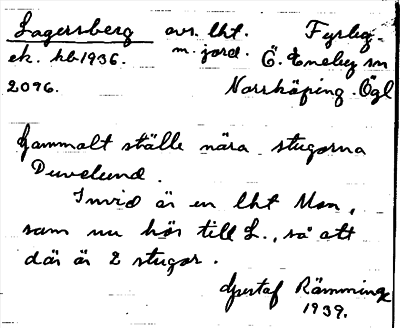 Lagersberg avs. lht. Fyrbg.
ek. kb 1936. m. jord. Ö. Eneby sn
2096. Norrköping. Ögl
Gammalt ställe nära stugorna
Duvelund.
Invid är en lht Mon,
som nu hör till L., så att
där är 2 stugor.
Gustaf Rämminge
1939.